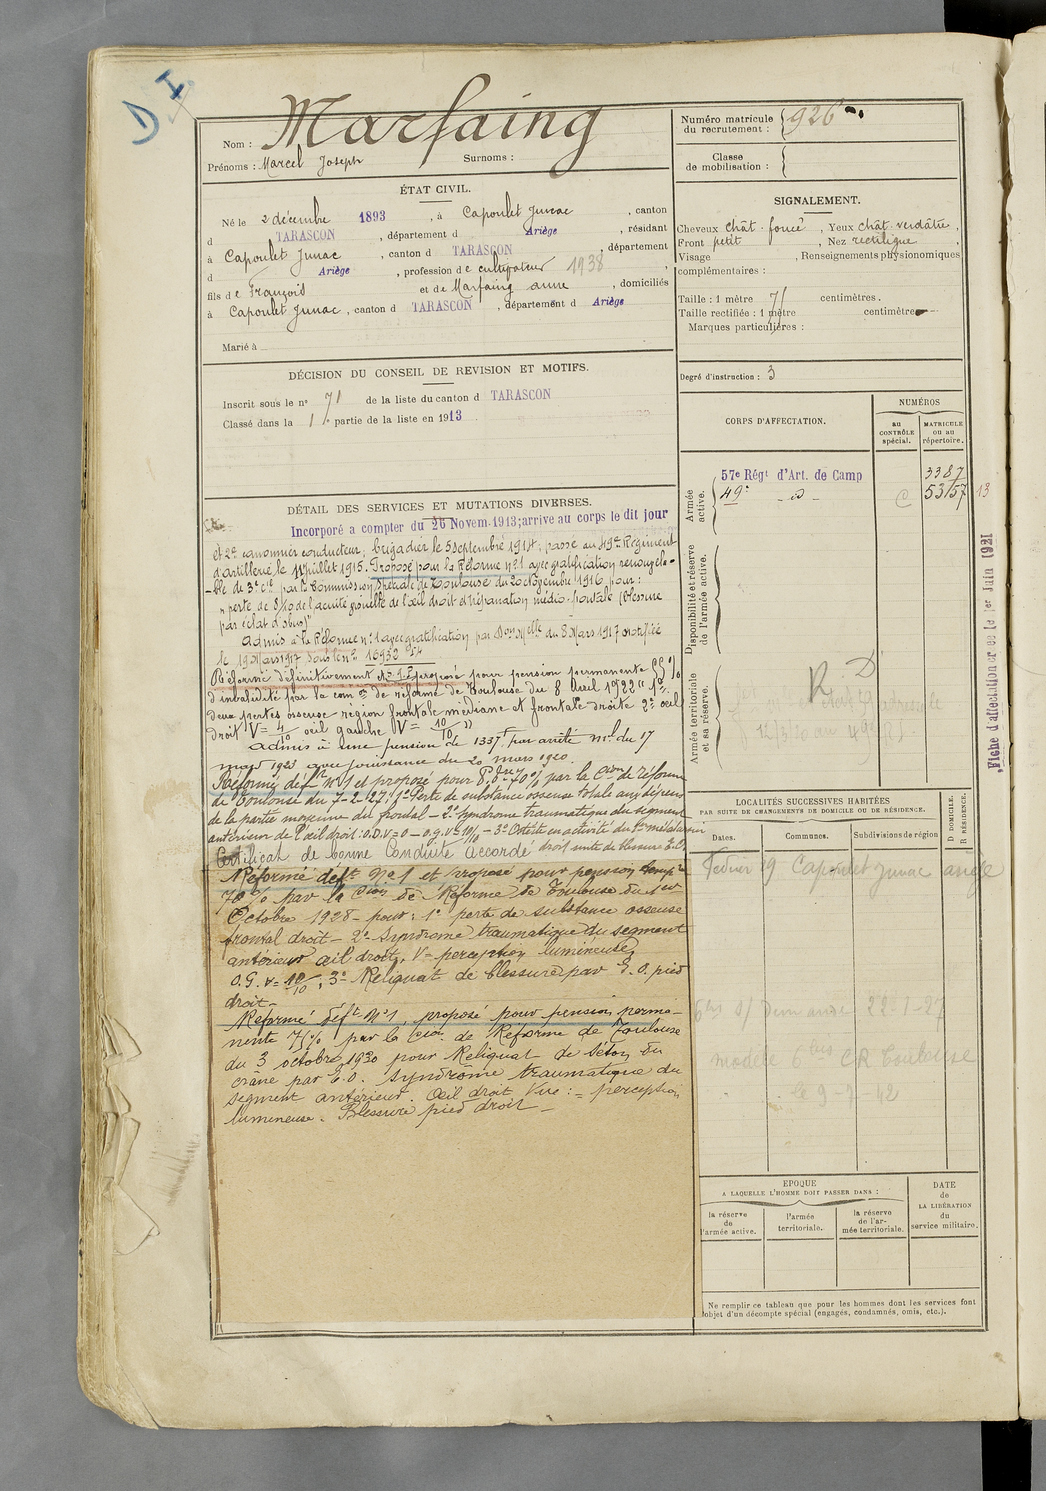 D I
Nom : Marfaing
Prénoms : Marcel Joseph Surnoms :
Numéro matricule du recrutement : 926
Classe de mobilisation :
ÉTAT CIVIL.
Né le 2 décembre 1893, à Capoulet Junac, canton
d TARASCON, département d Ariège, résidant
à Capoulet Junac, canton d TARASCON, département
d Ariège, profession de cultivateur 1938
fils de François et de Marfaing anne, domiciliés
à Capoulet Junac, canton d TARASCON, département d Ariège
Marié à
SIGNALEMENT.
Cheveux chât. foncé, Yeux chât. verdâtre,
Front petit, Nez rectiligne,
Visage , Renseignements physionomiques
complémentaires :
Taille : 1 mètre 71 centimètres.
Taille rectifiée : 1 mètre centimètre
Marques particulières :
Degré d'instruction : 3
DÉCISION DU CONSEIL DE REVISION ET MOTIFS.
Inscrit sous le no 71 de la liste du canton d TARASCON
Classé dans la 1 partie de la liste en 1913
CORPS D'AFFECTATION.
NUMÉROS
au CONTRÔLE spécial.
MATRICULE ou au répertoire.
Armée active.
57e Régt d'Art. de Camp 3387
49e - d° - C 53157 13
Disponibilité et réserve de l'armée active.
Armée territoriale et sa réserve.
R D
Fiche d'affectation créée le 1er Juin 1921
DÉTAIL DES SERVICES ET MUTATIONS DIVERSES.
Incorporé a compter du 26 Novem. 1913; arrive au corps le dit jour
et 2e canonnier conducteur; brigadier le 5 septembre 1914; passé au 49e Régiment
d'artillerie le 11 juillet 1915. Proposé pour la Réforme no 1 avec gratification renouvela-
-ble de 3e Cie par la Commission Spéciale de Toulouse du 20 décembre 1916, pour :
"perte de 8/10 de l'acuité visuelle de l'œil droit et trépanation médio-frontale (blessure
par éclat d'obus)"
Admis à la Réforme no 1 avec gratification par Don Melle du 8 Mars 1917 notifiée
le 19 Mars 1917 sous le no 16932
Réformé définitivement No 1 et proposé pour pension permanente 65 %
d'invalidité par la comon de réforme de Toulouse du 8 Avril 1922 "1o
deux pertes osseuse région frontale médiane et frontale droite 2o œil
droit V = 4/10 œil gauche V = 10/10"
Admis à une pension de 1337f par arrêté mel du 17
mars 1923 avec jouissance du 20 mars 1920.
Réformé déft No 1 et proposé pour 70 % par la Cion de réforme
de Toulouse du 7-2-27 : 1o Perte de substance osseuse totale
de la partie moyenne du frontal - 2o Syndrome traumatique du segment
antérieur de l'œil droit : O.D.V = 0 - O.G.V = 10/10 - 3o Ostéite en activité du métatarsien
Certificat de bonne Conduite accordé droit suite de blessure E.O.
Réformé déft No 1 et proposé pour pension tempre
70 % par la Cion de Réforme de Toulouse du 1er
Octobre 1928 - pour : 1o perte de substance osseuse
frontal droit - 2o Syndrome traumatique du segment
antérieur œil droit, V = perception lumineuse,
O.G. V = 10/10 ; 3o Reliquat de blessure par E.O. pied
droit -
Réformé déft No 1, proposé pour pension perma-
nente 75 % par la Cion de Réforme de Toulouse
du 3 octobre 1930 pour Reliquat de Séton du
crâne par E.O. Syndrome traumatique du
segment antérieur. Œil droit Vue : = perception
lumineuse. Blessure pied droit -
LOCALITÉS SUCCESSIVES HABITÉES
PAR SUITE DE CHANGEMENTS DE DOMICILE OU DE RÉSIDENCE.
D DOMICILE. R RÉSIDENCE.
Dates. Communes. Subdivisions de région
Février 19 Capoulet Junac
22-1-27
modèle 6 bis CR Toulouse
le 9-7-42
EPOQUE
A LAQUELLE L'HOMME DOIT PASSER DANS :
la réserve de l'armée active.
l'armée territoriale.
la réserve de l'armée territoriale.
DATE de LA LIBÉRATION du service militaire.
Ne remplir ce tableau que pour les hommes dont les services font
l'objet d'un décompte spécial (engagés, condamnés, omis, etc.).